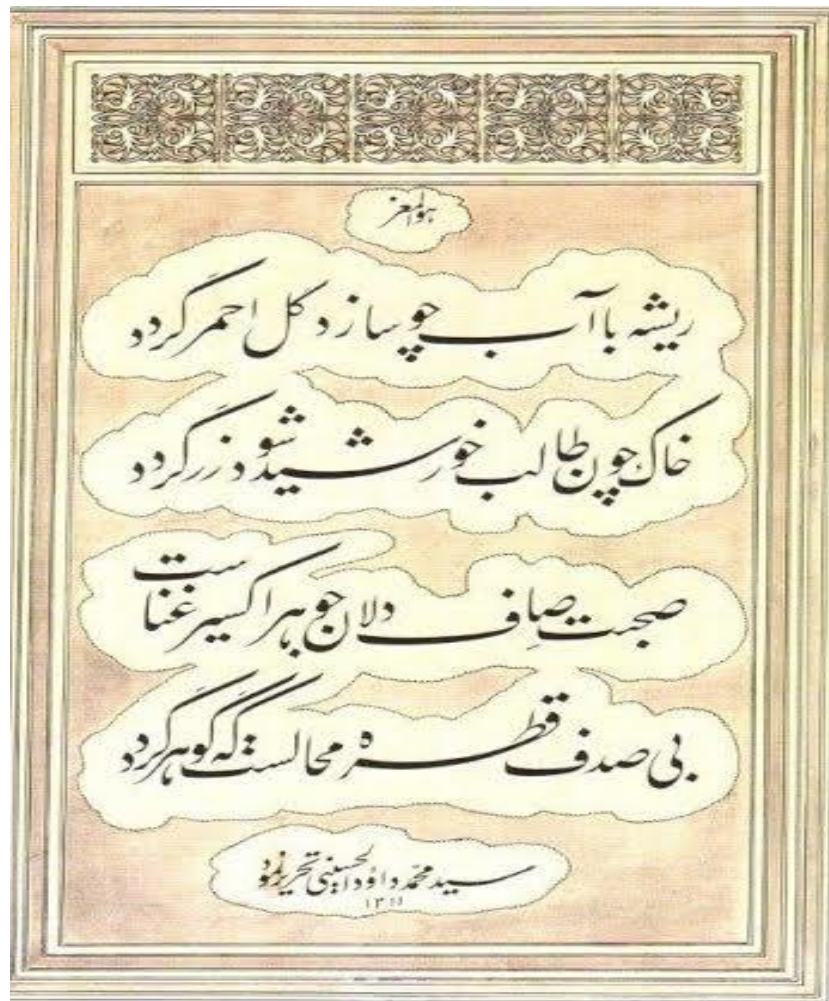 هوالمعز
ریشه با آب چو سازد گل احمر گردد
خاک چون طالب خورشید شود زر گردد
صحبت صاف دلان جوهر اکسیر غناست
بی صدف قطره محالست که گوهر گردد
سید محمد داؤد الحسینی تحریر نمود